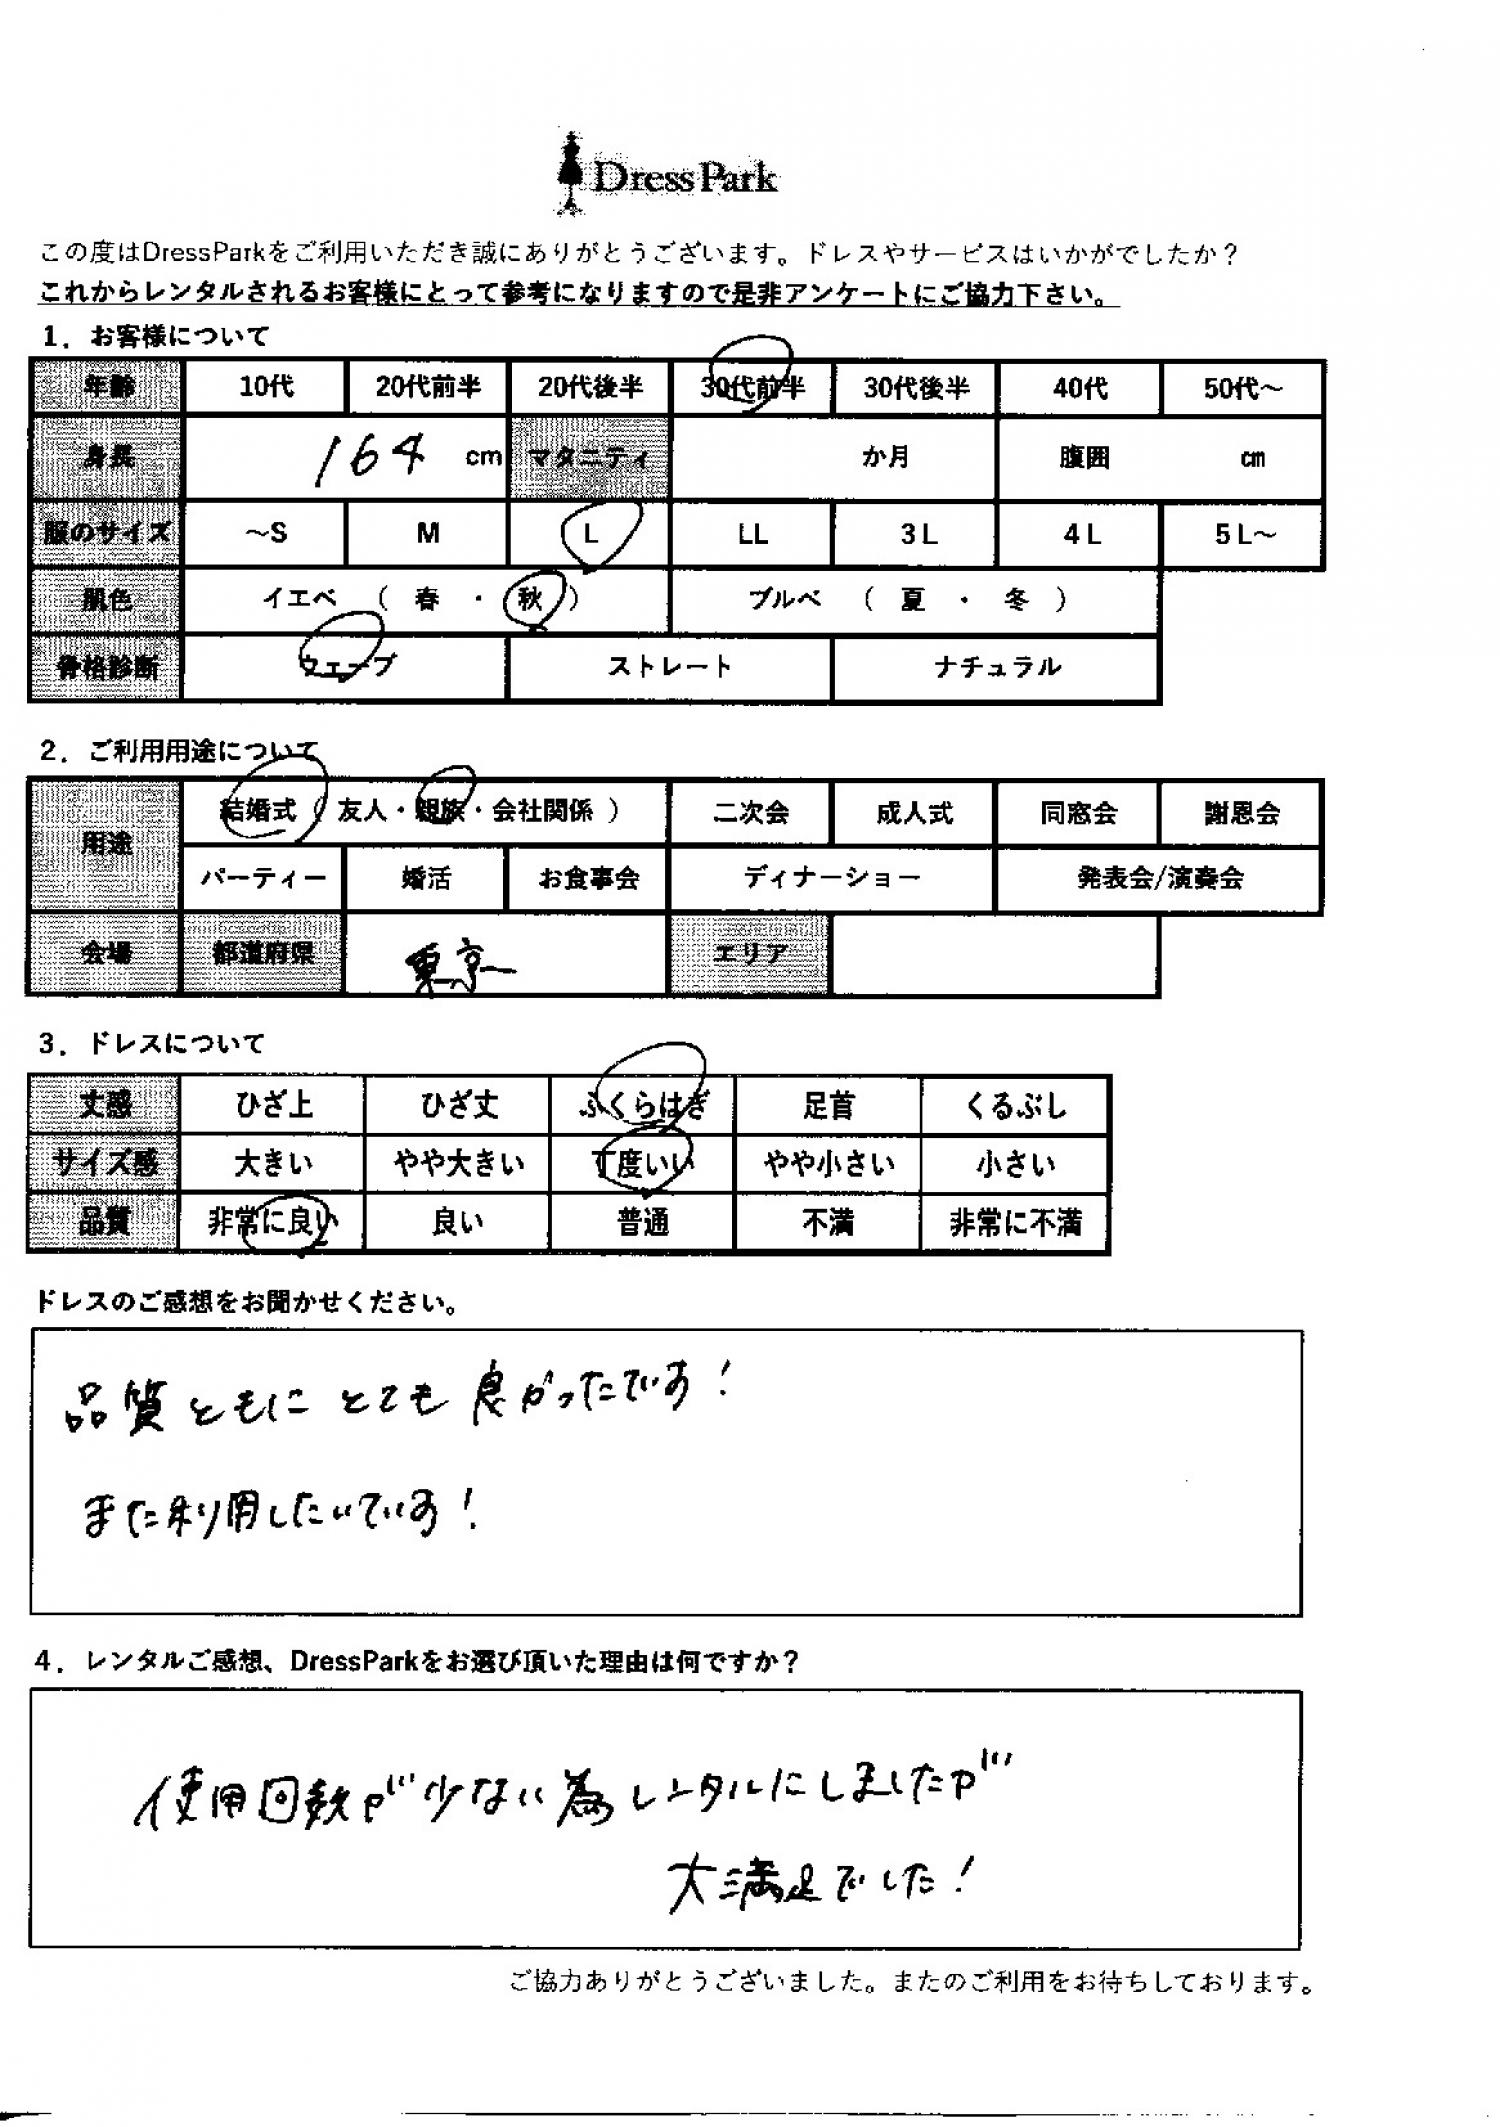 DressPark
この度はDressParkをご利用いただき誠にありがとうございます。ドレスやサービスはいかがでしたか？
これからレンタルされるお客様にとって参考になりますので是非アンケートにご協力下さい。
1．お客様について
年齢 10代 20代前半 20代後半 30代前半 30代後半 40代 50代～
身長 164 cm マタニティ か月 腹囲 ㎝
服のサイズ ～S M L LL 3L 4L 5L～
肌色 イエベ （ 春 ・ 秋 ） ブルベ （ 夏 ・ 冬 ）
骨格診断 ウェーブ ストレート ナチュラル
2．ご利用用途について
用途 結婚式（ 友人・親族・会社関係 ） 二次会 成人式 同窓会 謝恩会
パーティー 婚活 お食事会 ディナーショー 発表会/演奏会
会場 都道府県 東京 エリア
3．ドレスについて
丈感 ひざ上 ひざ丈 ふくらはぎ 足首 くるぶし
サイズ感 大きい やや大きい 丁度いい やや小さい 小さい
品質 非常に良い 良い 普通 不満 非常に不満
ドレスのご感想をお聞かせください。
品質ともにとても良かったです！
また利用したいです！
4．レンタルご感想、DressParkをお選び頂いた理由は何ですか？
使用回数が少ない為レンタルにしましたが
大満足でした！
ご協力ありがとうございました。またのご利用をお待ちしております。